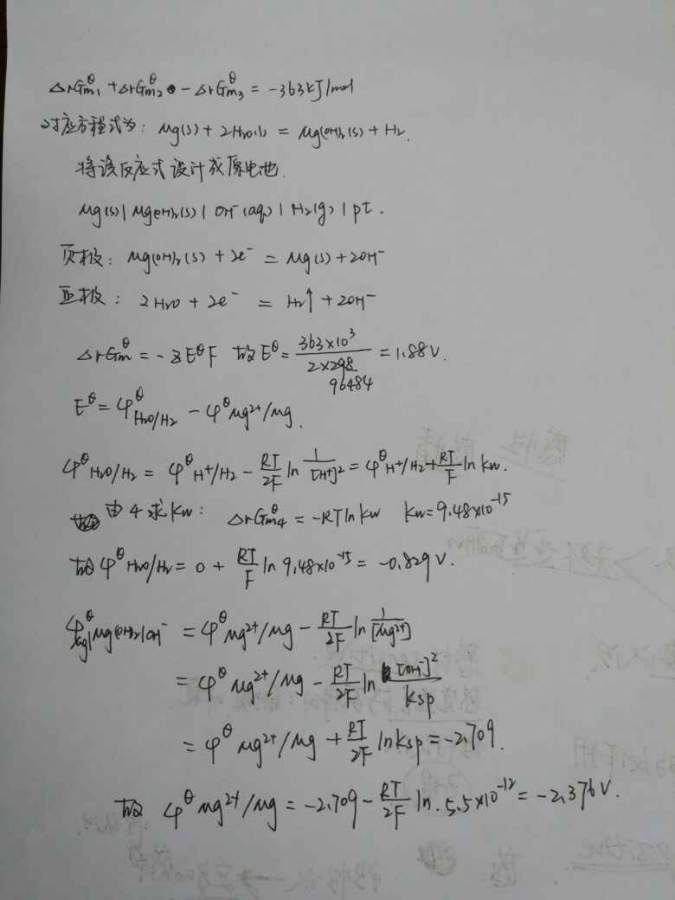 ΔrGm₁^θ + ΔrGm₂^θ - ΔrGm₃^θ = -363kJ/mol
对应方程式为: Mg(s) + 2H₂O(l) = Mg(OH)₂(s) + H₂.
将该反应式设计成原电池.
Mg(s) | Mg(OH)₂(s) | OH⁻(aq) | H₂(g) | pt.
负极: Mg(OH)₂(s) + 2e⁻ = Mg(s) + 2OH⁻
正极: 2H₂O + 2e⁻ = H₂↑ + 2OH⁻
ΔrGm^θ = -zE^θF 故E^θ = 363×10³ / 2×96484 = 1.88V.
E^θ = φ^θ H₂O/H₂ - φ^θ Mg²⁺/Mg.
φ^θ H₂O/H₂ = φ^θ H⁺/H₂ - RT/2F ln 1/[H⁺]² = φ^θ H⁺/H₂ + RT/F ln Kw.
由4求Kw: ΔrGm₄^θ = -RTlnKw Kw = 9.48×10⁻¹⁵
故φ^θ H₂O/H₂ = 0 + RT/F ln 9.48×10⁻¹⁵ = -0.829V.
φ^θ Mg(OH)₂/OH⁻ = φ^θ Mg²⁺/Mg - RT/2F ln 1/[Mg²⁺]
= φ^θ Mg²⁺/Mg - RT/2F ln [OH⁻]²/Ksp
= φ^θ Mg²⁺/Mg + RT/2F lnKsp = -2.709.
故 φ^θ Mg²⁺/Mg = -2.709 - RT/2F ln 5.5×10⁻¹² = -2.376V.